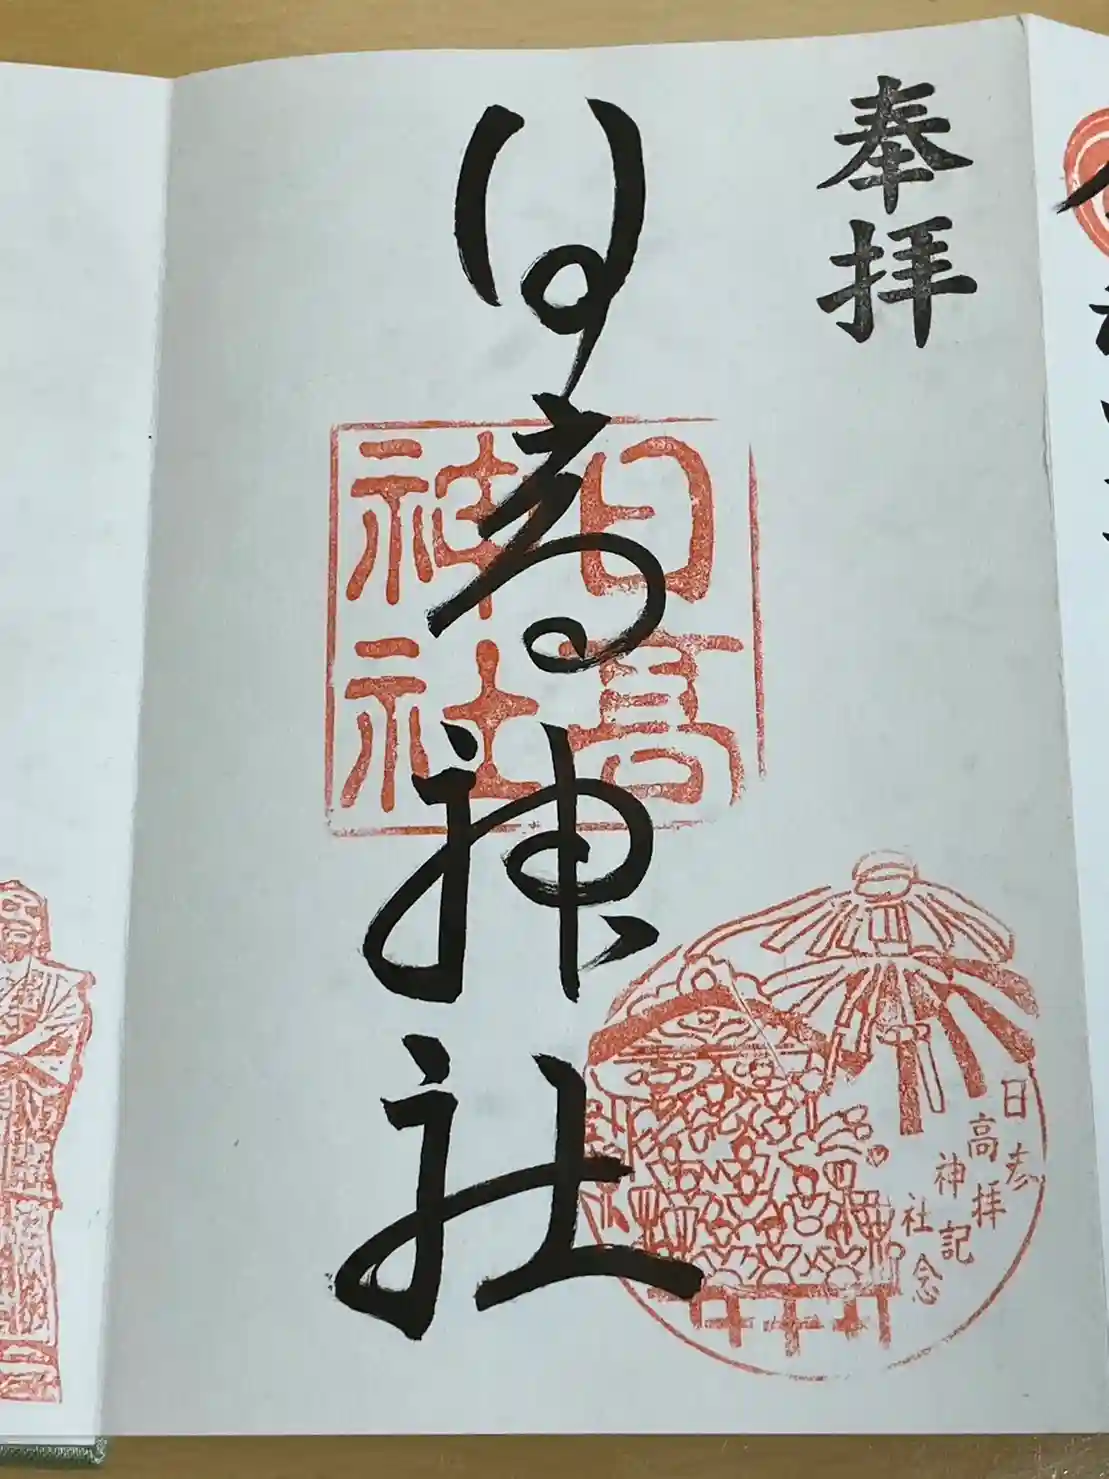 奉拝
日高神社
日高
神社
日高神社
参拝記念